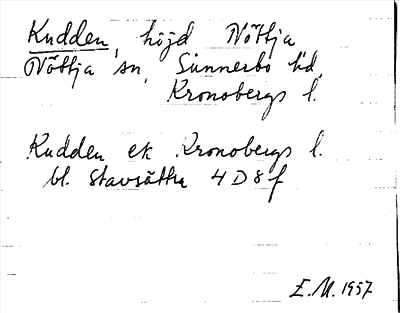 Kudden, höjd Nöttja
Nöttja sn, Sunnerbo hd,
Kronobergs l.
Kudden ek Kronobergs l.
bl. Stavsätra 4 D 8 f
E.M. 1957